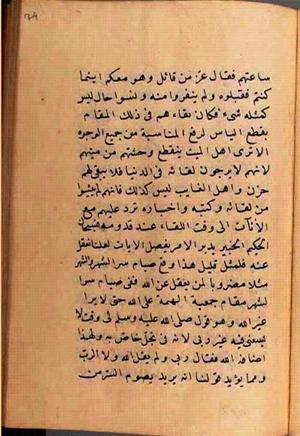 ساعتهم فقال عز من قائل وهو معكم اينما
كنتم فقبلوه ولم ينفروا منه وانسوا حال ليس
كمثله شيء فكان بقاءهم في ذلك المقام
بقطع الياس لرفع المناسبة من جميع الوجوه
الا ترى اهل الميت ينقطع وحشتهم من ميتهم
لانهم لا يرجون لقائه في الدنيا فلا يبقى لهم
حزن واهل الغايب ليس كذلك فانهم لم ييئسوا
من لقائه وكتبه واخباره ترد عليهم مع
الآنات الى وقت اللقاء عند قدومه فسبحان
الحكيم الخبير يدبر الامر يفصل الايات لعلنا نعقل
عنه فلمثل قليل هذا وقع صيام سرا الشهر والشهر
مثلا مضروبا لمن يعقل عن الله ففي صيام سرا
الشهر مقام جمعية الهمة على الله حتى لا يرا
غير الله وهو قول صلى الله عليه وسلم لي وقت لا
يسعني فيه غير ربي لانه في تجلي خاص به ولهذا
اضافه الى الله فقال ربي ولم يقل الله ولا الرب
ومما يؤيد قولنا انه يريد بصوم السر من